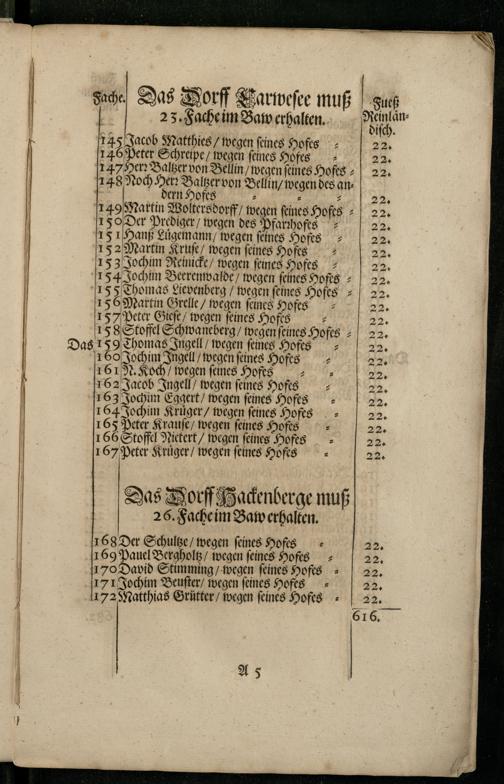 Fache. Das Dorff Carwesee muß Fueß
23. Fache im Baw erhalten. Reinlän-
disch.
145 Jacob Matthies / wegen seines Hofes - 22.
146 Peter Schreipe / wegen seines Hofes - 22.
147 Herr Baltzer von Bellin / wegen seines Hofes - 22.
148 Noch Herr Baltzer von Bellin / wegen des an-
dern Hofes - - - 22.
149 Martin Woltersdorff / wegen seines Hofes - 22.
150 Der Prediger / wegen des Pfarrhofes - 22.
151 Hanß Lügemann / wegen seines Hofes - 22.
152 Martin Kruse / wegen seines Hofes - 22.
153 Jochim Reinicke / wegen seines Hofes - 22.
154 Jochim Beerenwalde / wegen seines Hofes - 22.
155 Thomas Lievenberg / wegen seines Hofes - 22.
156 Martin Grelle / wegen seines Hofes - 22.
157 Peter Giese / wegen seines Hofes - 22.
158 Stoffel Schwaneberg / wegen seines Hofes - 22.
Das 159 Thomas Ingell / wegen seines Hofes - 22.
160 Jochim Ingell / wegen seines Hofes - 22.
161 N. Koch / wegen seines Hofes - - 22.
162 Jacob Ingell / wegen seines Hofes - 22.
163 Jochim Eggert / wegen seines Hofes - 22.
164 Jochim Krüger / wegen seines Hofes - 22.
165 Peter Krause / wegen seines Hofes - 22.
166 Stoffel Nietert / wegen seines Hofes - 22.
167 Peter Krüger / wegen seines Hofes - 22.
Das Dorff Hackenberge muß
26. Fache im Baw erhalten.
168 Der Schultze / wegen seines Hofes - 22.
169 Pauel Bergholtz / wegen seines Hofes - 22.
170 David Stimming / wegen seines Hofes - 22.
171 Jochim Beuster / wegen seines Hofes - 22.
172 Matthias Grütter / wegen seines Hofes - 22.
616.
A 5